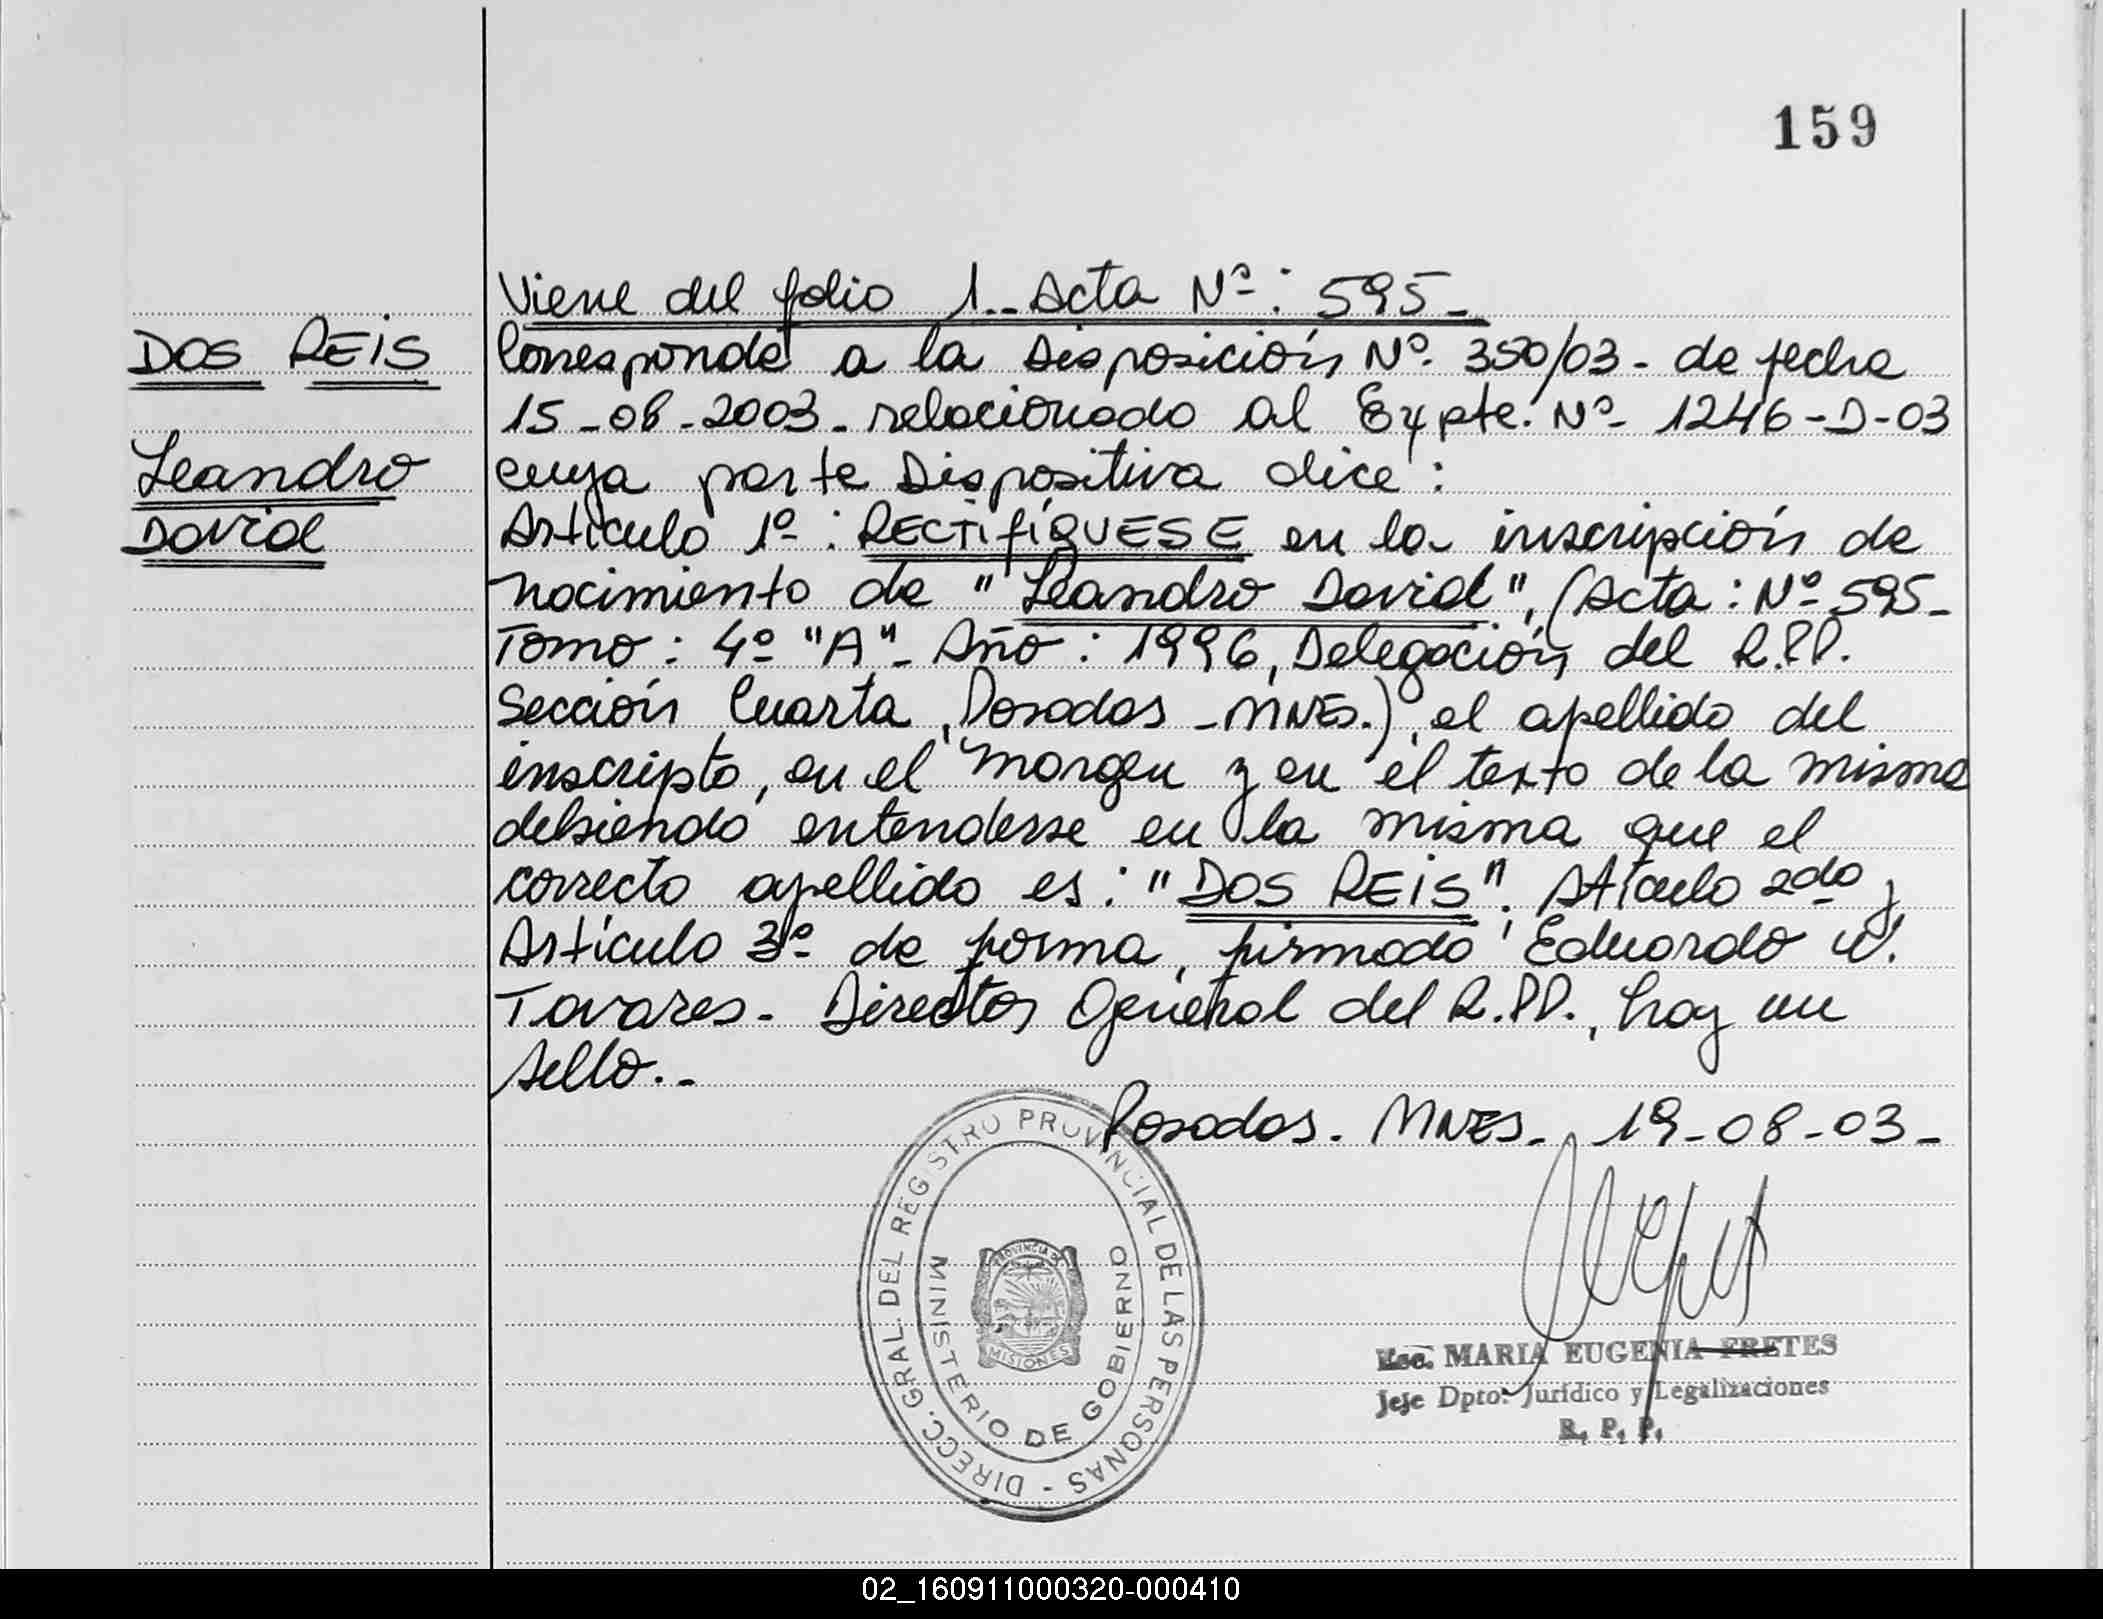 159
Viene del folio 1.- Acta Nº: 595-
DOS REIS
Corresponde a la Disposición Nº 350/03- de fecha
15-08-2003- relacionado al Expte. Nº- 1246-D-03
Leandro
cuya parte Dispositiva dice:
David
Artículo 1º: RECTIFÍQUESE en la inscripción de
nacimiento de "Leandro David", (Acta: Nº 595-
Tomo: 4º "A"- Año: 1996, Delegación del R.P.P.
Sección Cuarta, Posadas - MNES.) el apellido del
inscripto, en el margen y en el texto de la misma
debiendo entenderse en la misma que el
correcto apellido es: "DOS REIS". Atículo 2do y
Artículo 3º de forma, firmado Eduardo W.
Tavares- Director General del R.P.P., hay un
sello.-
Posadas. MNES- 19-08-03-
DIRECC. GRAL. DEL REGISTRO PROVINCIAL DE LAS PERSONAS -
MINISTERIO DE GOBIERNO
PROVINCIA DE
MISIONES
Esc. MARIA EUGENIA FRETES
Jefe Dpto. Jurídico y Legalizaciones
R. P. P.
02_160911000320-000410